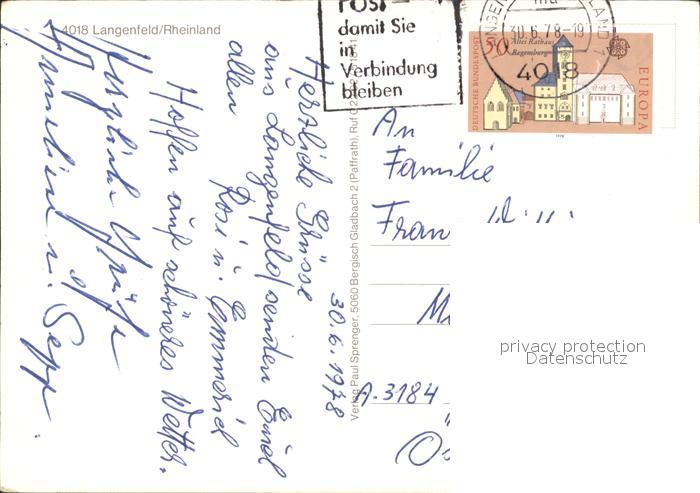 4018 Langenfeld/Rheinland
30.6.1978
Herzliche Grüsse
aus Langenfeld senden Euch
allen Rosi u. Emmerich
Hoffen auf schöneres Wetter.
Herzliche Grüße
u. Sepp.
Verlag Paul Sprenger, 5060 Bergisch Gladbach 2 (Paffrath), Ruf
POST-
damit Sie
in
Verbindung
bleiben
30.6.78-19
4018
DEUTSCHE BUNDESPOST
50
Altes Rathaus
Regensburg
EUROPA
1978
An
Familie
Fran
A-3184
privacy protection
Datenschutz